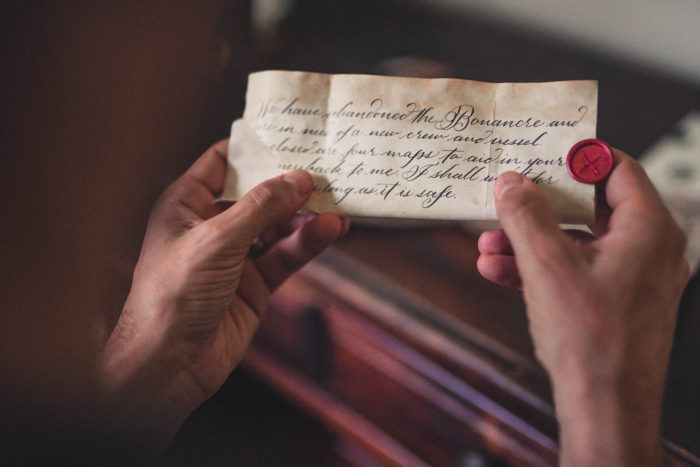 We have abandoned the Bonancre and
in need of a new crew and vessel.
closed are four maps to aid in your
back to me. I shall wait for
long as it is safe.